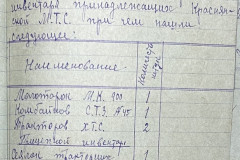 инвентаря принадлежащих Краснян-
ской М.Т.С. при чем нашли
следующее:
Наименование
Количество штук
Молоторок М.К. 1
Комбайнов С.Т.З. 1
Тракторов Х.Т.З. 2
Прицепной инвентарь
Сеялок тракторных